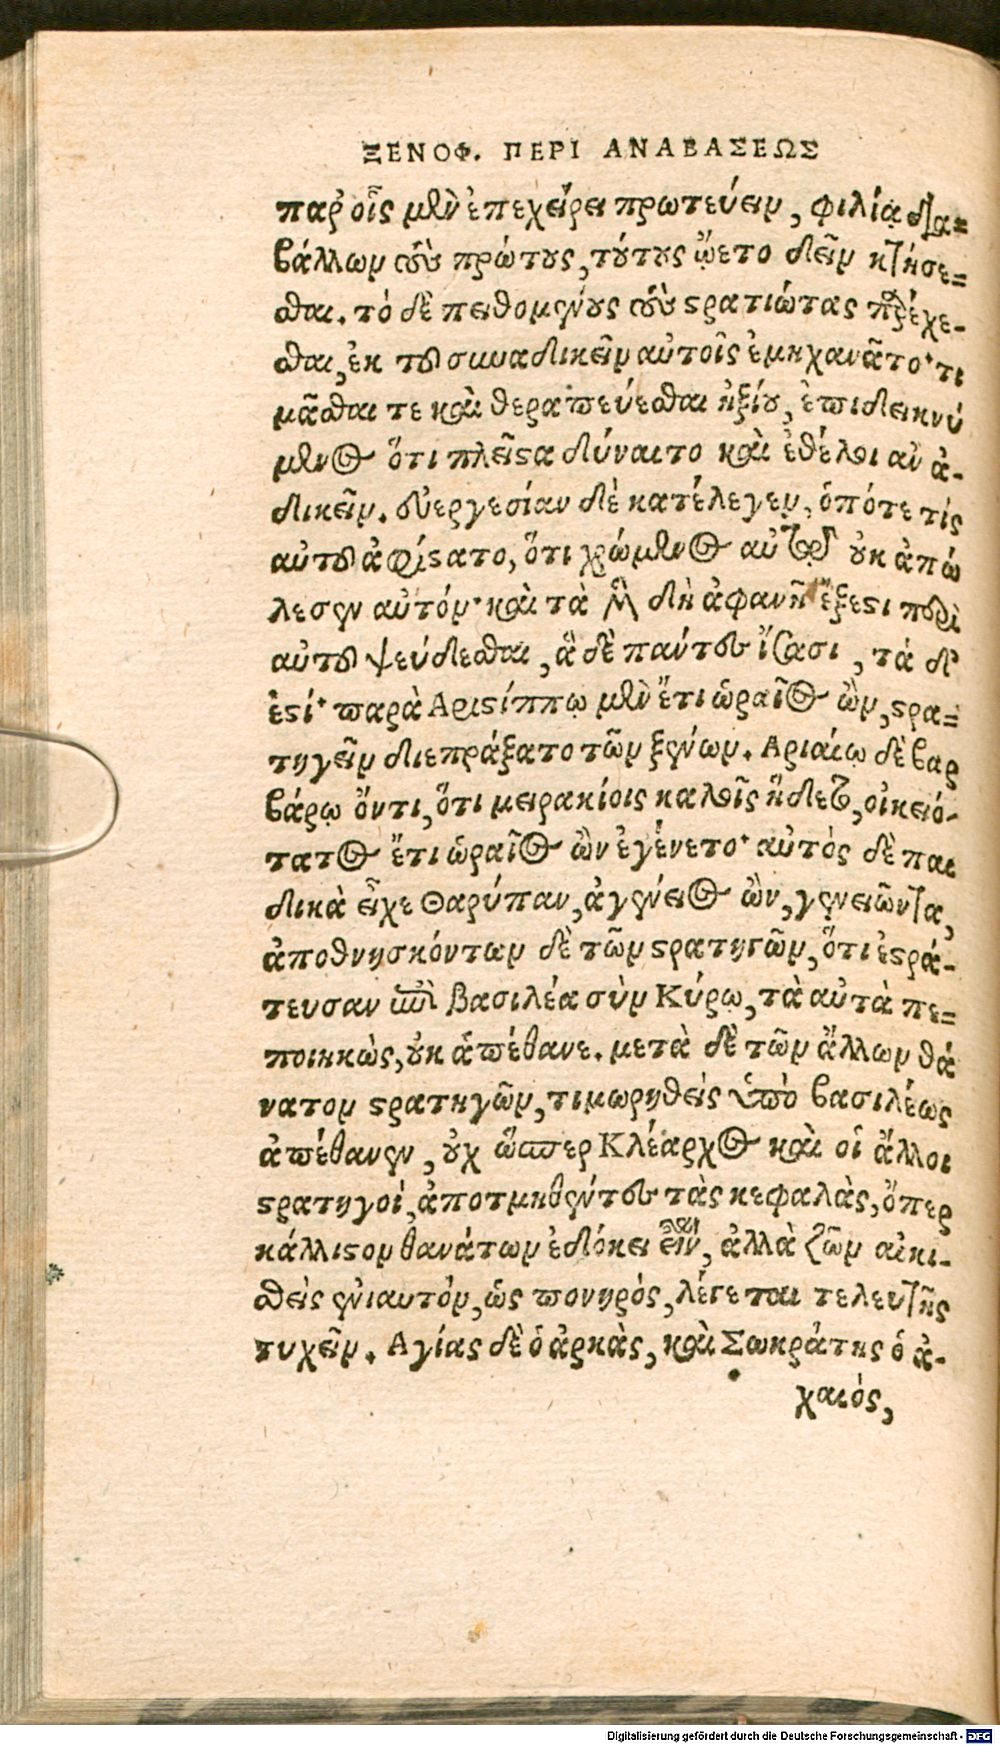 ΞΕΝΟΦ. ΠΕΡΙ ΑΝΑΒΑΣΕΩΣ
παρ᾽ οἷς μὲν ἐπεχείρει πρωτεύειν, φιλίᾳ δια=
βάλλων τοὺς πρώτους, τούτους ᾤετο δεῖν κτήσε=
σθαι. τὸ δὲ πειθομένους τοὺς στρατιώτας παρέχε-
σθαι, ἐκ τοῦ συναδικεῖν αὐτοῖς ἐμηχανᾶτο· τι
μᾶσθαι τε καὶ θεραπεύεσθαι ἠξίου, ἐπιδεικνύ
μενος ὅτι πλεῖστα δύναιτο καὶ ἐθέλοι αν ἀ-
δικεῖν. εὐεργεσίαν δὲ κατέλεγεν, ὁπότε τίς
αὐτοῦ ἀφίστατο, ὅτι χρώμενος αὐτῷ οὐκ ἀπώ
λεσεν αὐτόν· καὶ τὰ μὲν δὴ ἀφανῆ ἔξεστι περὶ
αὐτοῦ ψεύδεσθαι, ἃ δὲ παντες ἴσασι, τά δ᾽
ἐστί· παρὰ Αριστίππῳ μὲν ἔτι ὡραῖος ὢν, στρα=
τηγεῖν διεπράξατο τῶν ξένων. Αριαίῳ δὲ βαρ
βάρῳ ὄντι, ὅτι μειρακίοις καλοῖς ἥδετο, οἰκειό-
τατος ἔτι ὡραῖος ὢν ἐγένετο· αὐτός δὲ παι
δικὰ εἶχε Θαρύπαν, ἀγένειος ὢν, γενειῶντα,
ἀποθνησκόντων δὲ τῶν στρατηγῶν, ὅτι ἐστρά-
τευσαν ἐπὶ βασιλέα σὺν Κύρῳ, τὰ αὐτὰ πε=
ποιηκὼς, οὐκ ἀπέθανε. μετὰ δὲ τῶν ἄλλων θά
νατον στρατηγῶν, τιμωρηθεὶς ὑπὸ βασιλέως
ἀπέθανεν, οὐχ ὥσπερ Κλέαρχος καὶ οἱ ἄλλοι
στρατηγοί, ἀποτμηθέντες τὰς κεφαλὰς, ὅπερ
κάλλιστον θανάτων ἐδόκει εἶναι, ἀλλὰ ζῶν αἰκι-
σθεὶς ἐνιαυτόν, ὡς πονηρός, λέγεται τελευτῆς
τυχεῖν. Αγίας δὲ ὁ ἀρκὰς, καὶ Σωκράτης ὁ ἀ-
χαιός,
Digitalisierung gefördert durch die Deutsche Forschungsgemeinschaft - DFG